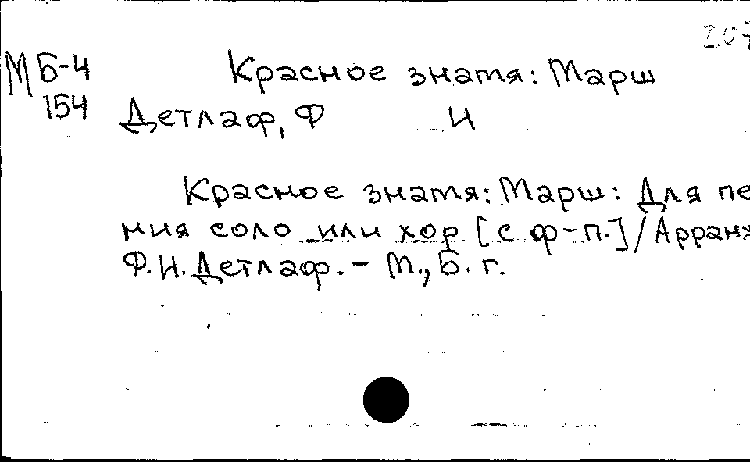 207
МБ-4 Красное знамя: Марш
154 Детлаф, Ф И
Красное знамя: Марш: Для пе
ния соло или хор [с ф-п.]/Арранж
Ф.И.Детлаф. - М., Б. г.